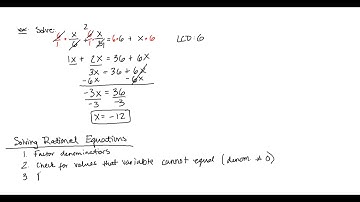 ex: Solve:
6/1 · x/6 + 6/1 · x/3 = 6·6 + x·6 LCD: 6
2
1x + 2x = 36 + 6x
3x = 36 + 6x
-6x -6x
-3x = 36
-3 -3
x = -12
Solving Rational Equations
1. Factor denominators
2. Check for values that variable cannot equal (denom ≠ 0)
3